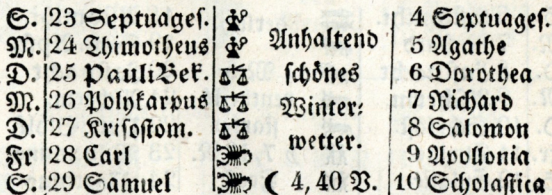 S. 23 Septuages. Anhaltend 4 Septuages.
M. 24 Thimotheus 5 Agathe
D. 25 Pauli Bek. schönes 6 Dorothea
M. 26 Polykarpus Winter- 7 Richard
D. 27 Krisostom. wetter. 8 Salomon
Fr 28 Carl 9 Apollonia
S. 29 Samuel ☾ 4, 40 V. 10 Scholastica